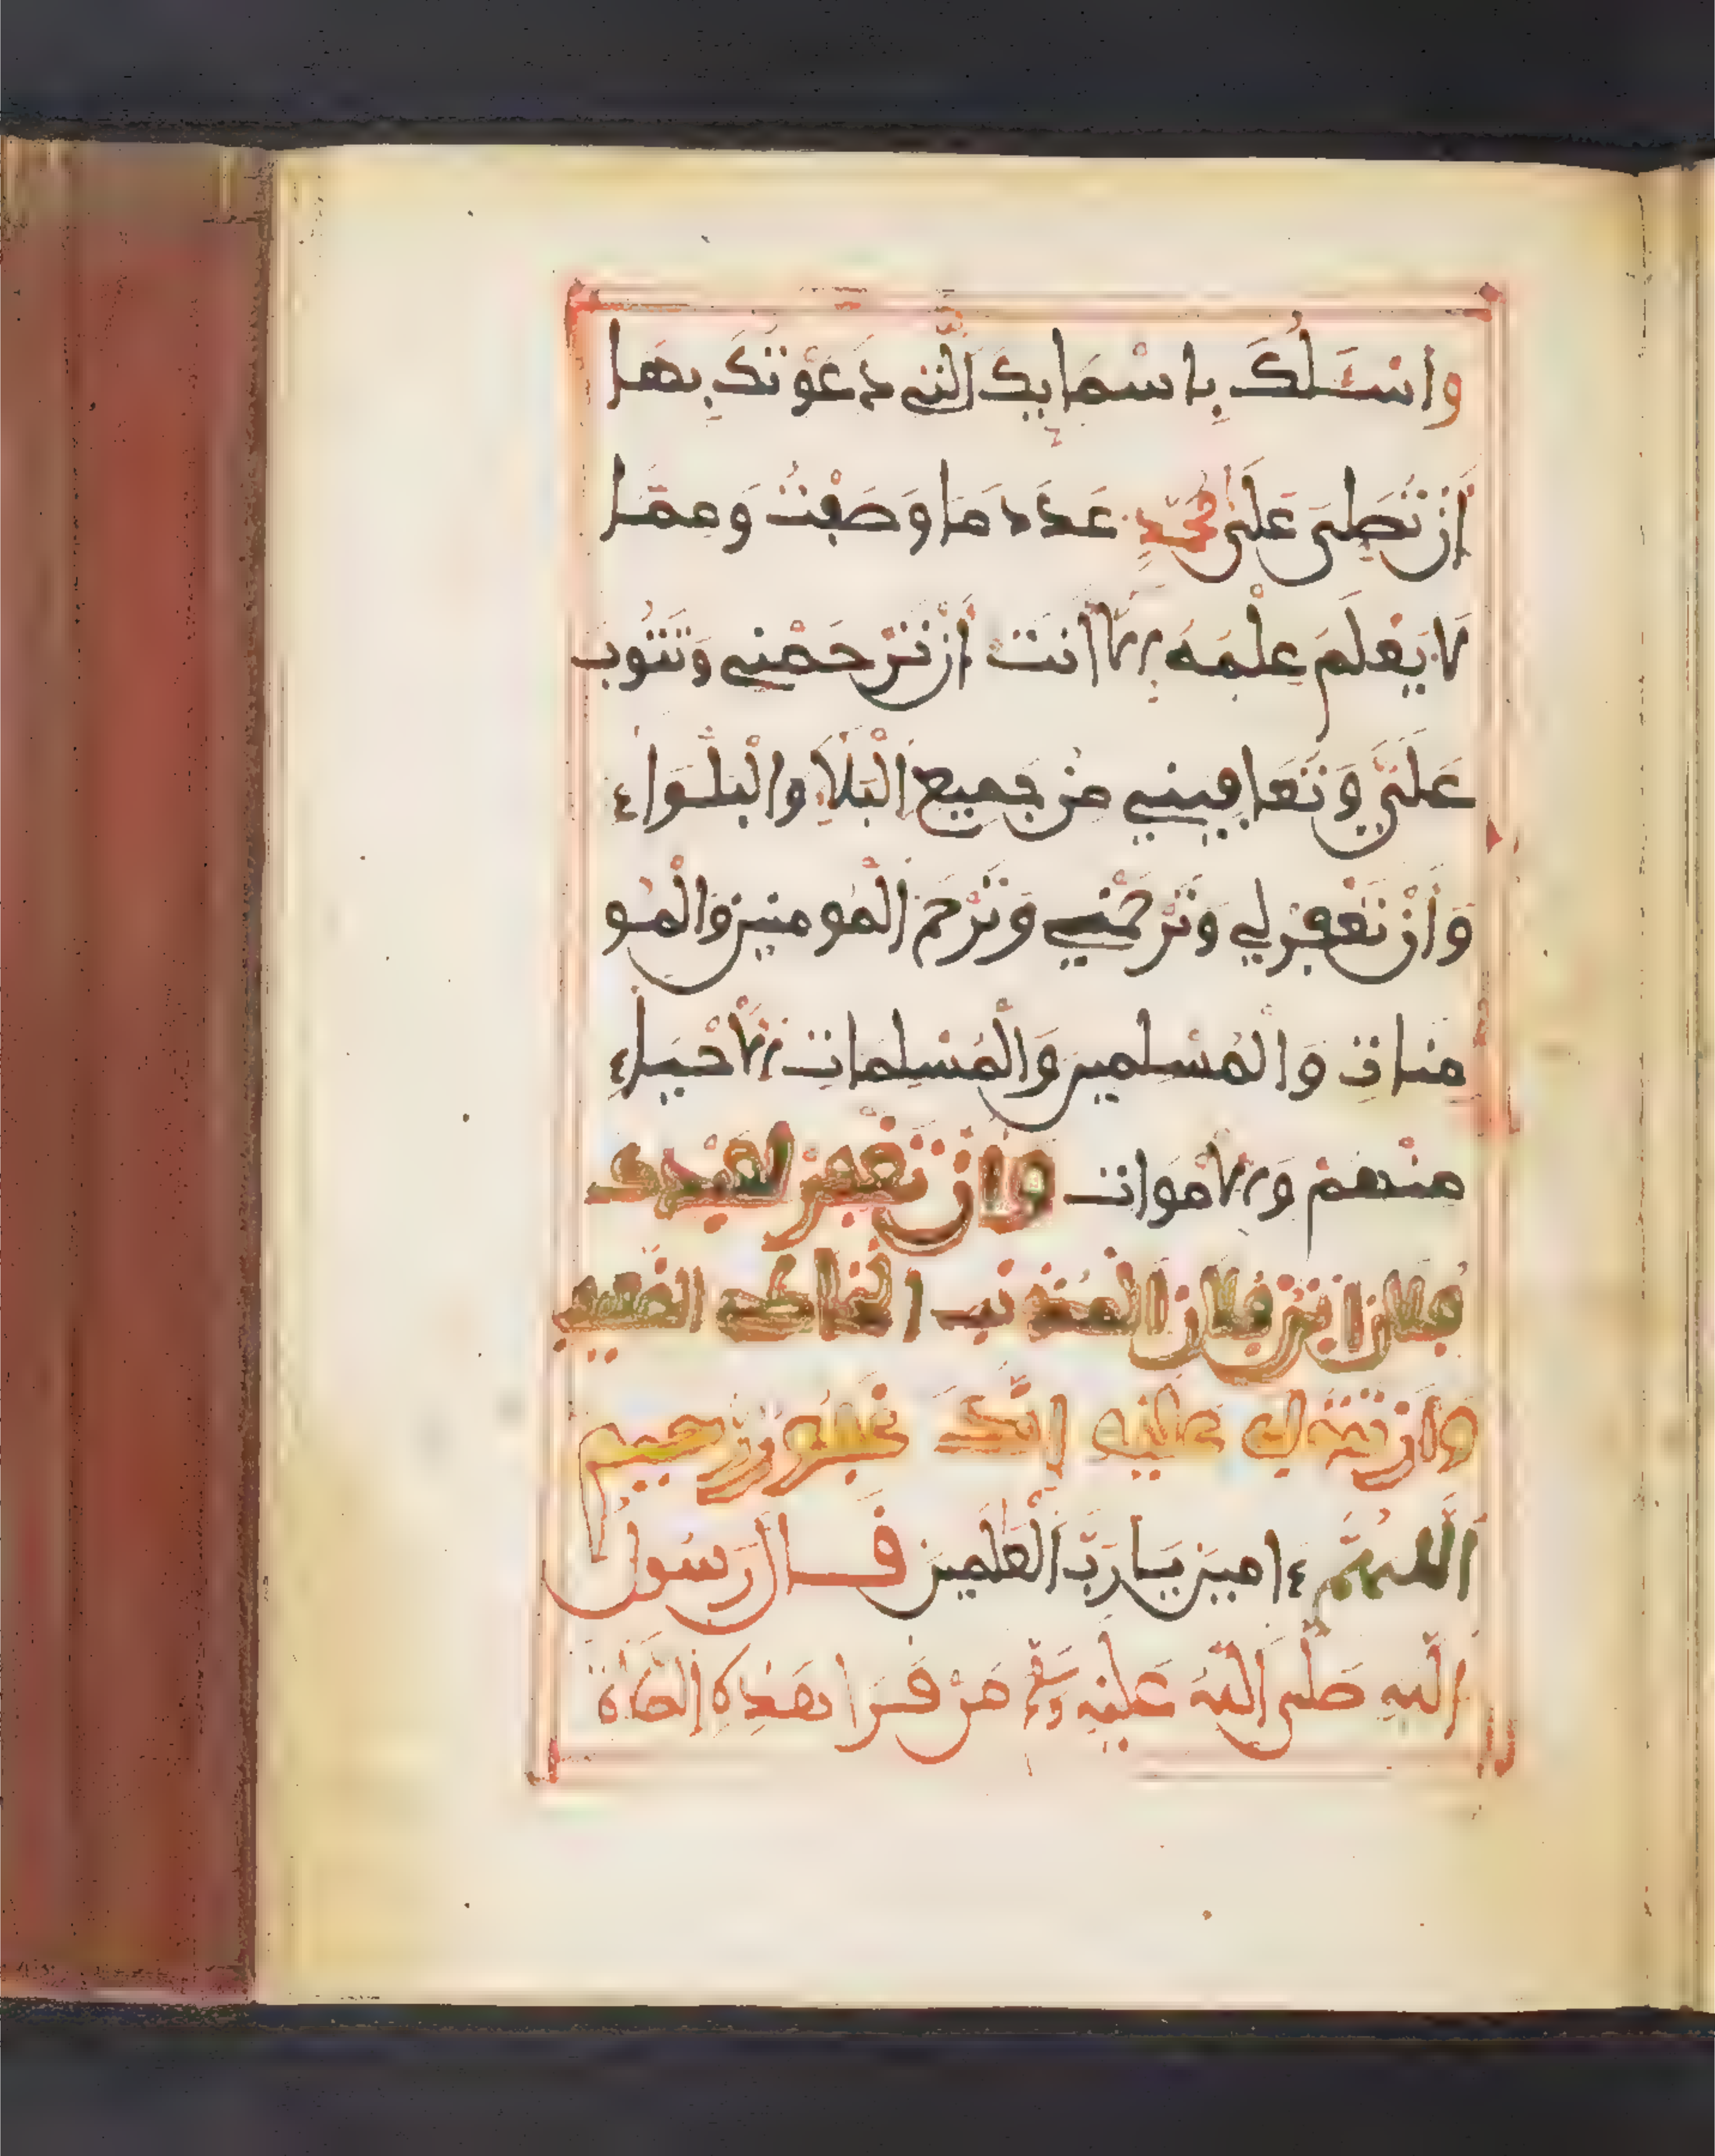 وَاسْـَٔلُكَ بِاسْمَايِكَ الَّتِي دَعَوْتُكَ بِهَا
أَنْ تُصَلِّيَ عَلَى مُحَمَّدٍ عَدَدَ مَا وَصَفْتُ وَمِمَّا
لَا يَعْلَمُ عِلْمَهُ إِلَّا أَنْتَ أَنْ تَرْحَمَنِي وَتَتُوبَ
عَلَيَّ وَتُعَافِيَنِي مِنْ جَمِيعِ الْبَلَاءِ وَالْبَلْوَاءِ
وَأَنْ تَغْفِرَ لِي وَتَرْحَمَنِي وَتَرْحَمَ الْمُومِنِينَ وَالْمُو
مِنَاتِ وَالْمُسْلِمِينَ وَالْمُسْلِمَاتِ الْأَحْيَاءِ
مِنْهُمْ وَالْأَمْوَاتِ وَأَنْ تَغْفِرَ لِعَبْدِكَ
فُلَانِ ابْنِ فُلَانِ الْمُذْنِبِ الْخَاطِئِ الضَّعِيفِ
وَأَنْ تَتُوبَ عَلَيْهِ إِنَّكَ غَفُورٌ رَّحِيمٌ
اللَّهُمَّ ءَامِينَ يَا رَبَّ الْعَٰلَمِينَ قَالَ رَسُولُ
اللَّهِ صَلَّى اللَّهُ عَلَيْهِ وَسَلَّمَ مَنْ قَرَأَ هَذِهِ الصَّلَاةَ